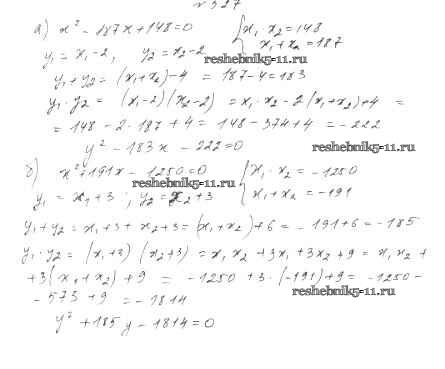 № 327
а) x² - 187x + 148 = 0 { x₁ x₂ = 148
x₁ + x₂ = 187
y₁ = x₁ - 2, y₂ = x₂ - 2
reshebnik5-11.ru
y₁ + y₂ = (x₁ + x₂) - 4 = 187 - 4 = 183
y₁ · y₂ = (x₁ - 2)(x₂ - 2) = x₁ · x₂ - 2(x₁ + x₂) + 4 =
= 148 - 2 · 187 + 4 = 148 - 374 + 4 = - 222
y² - 183x - 222 = 0
reshebnik5-11.ru
б) x² + 191x - 1250 = 0 { x₁ · x₂ = - 1250
x₁ + x₂ = - 191
reshebnik5-11.ru
y₁ = x₁ + 3 ; y₂ = x₂ + 3
y₁ + y₂ = x₁ + 3 + x₂ + 3 = (x₁ + x₂) + 6 = - 191 + 6 = - 185
y₁ · y₂ = (x₁ + 3) (x₂ + 3) = x₁ x₂ + 3x₁ + 3x₂ + 9 = x₁ x₂ +
+ 3(x₁ + x₂) + 9 = - 1250 + 3 · (- 191) + 9 = - 1250 -
reshebnik5-11.ru
- 573 + 9 = - 1814
y² + 185y - 1814 = 0